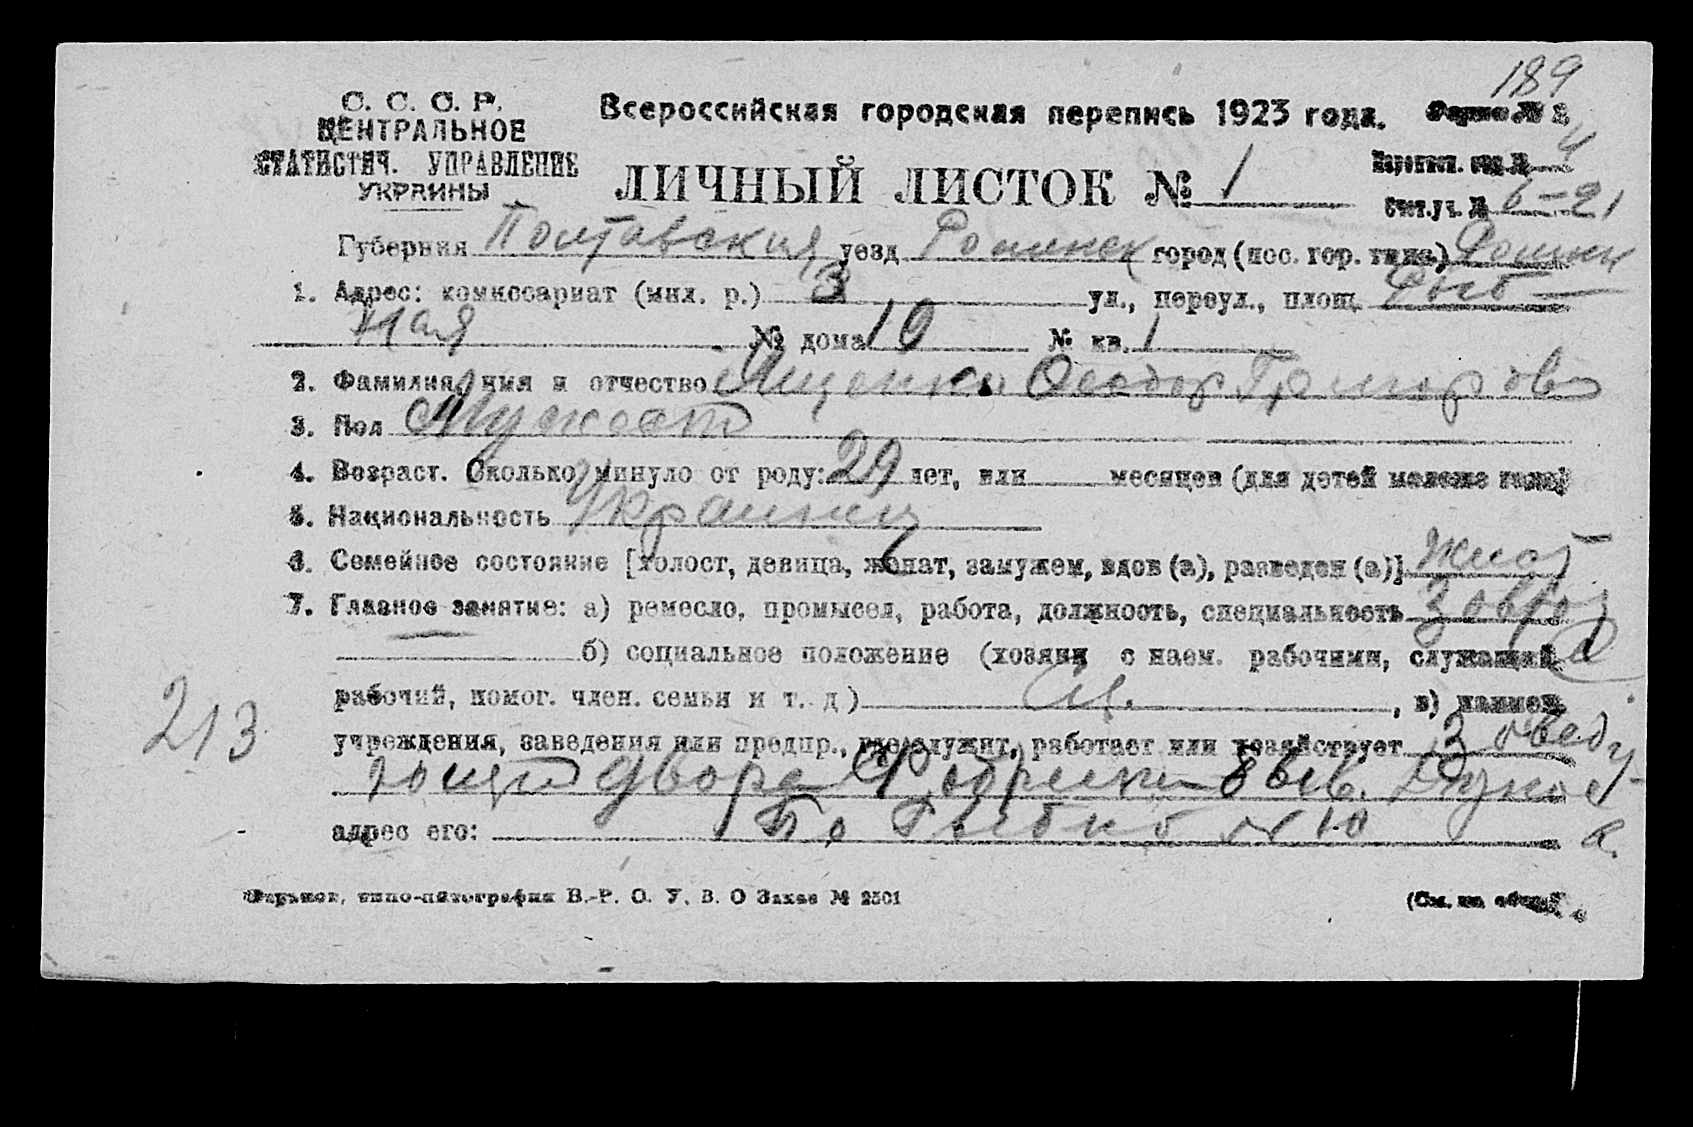 189
С. С. С. Р.
ЦЕНТРАЛЬНОЕ
СТАТИСТИЧ. УПРАВЛЕНИЕ
УКРАИНЫ
Всероссийская городская перепись 1923 года. Форма № 2
ЛИЧНЫЙ ЛИСТОК № 1
Переписн. отд. № 4
Счет. уч. № 6-21
Губерния Полтавская уезд Роменск город (пос. гор. типа) Ромны
1. Адрес: комиссариат (мил. р.) 3 ул., переул., площ. Рыб-
ная № дома 10 № кв. 1
2. Фамилия, имя и отчество Ященко Феодор Григоров
3. Пол Мужеск
4. Возраст. Сколько минуло от роду: 29 лет, или месяцев (для детей моложе года)
5. Национальность Украинец
6. Семейное состояние [холост, девица, женат, замужем, вдов (а), разведен (а)]
7. Главное занятие: а) ремесло, промысел, работа, должность, специальность
б) социальное положение (хозяин с наем. рабочими, служащий,
рабочий, помог. член. семьи и т. д.) , в) наимен.
учреждения, заведения или предпр., где служит, работает или хозяйствует Заведу-
ющий двора
адрес его: По Рыбно № 10
213
Харьков, типо-литография В.-Р. О. У. В. О Заказ № 2501
(См. на обор.)